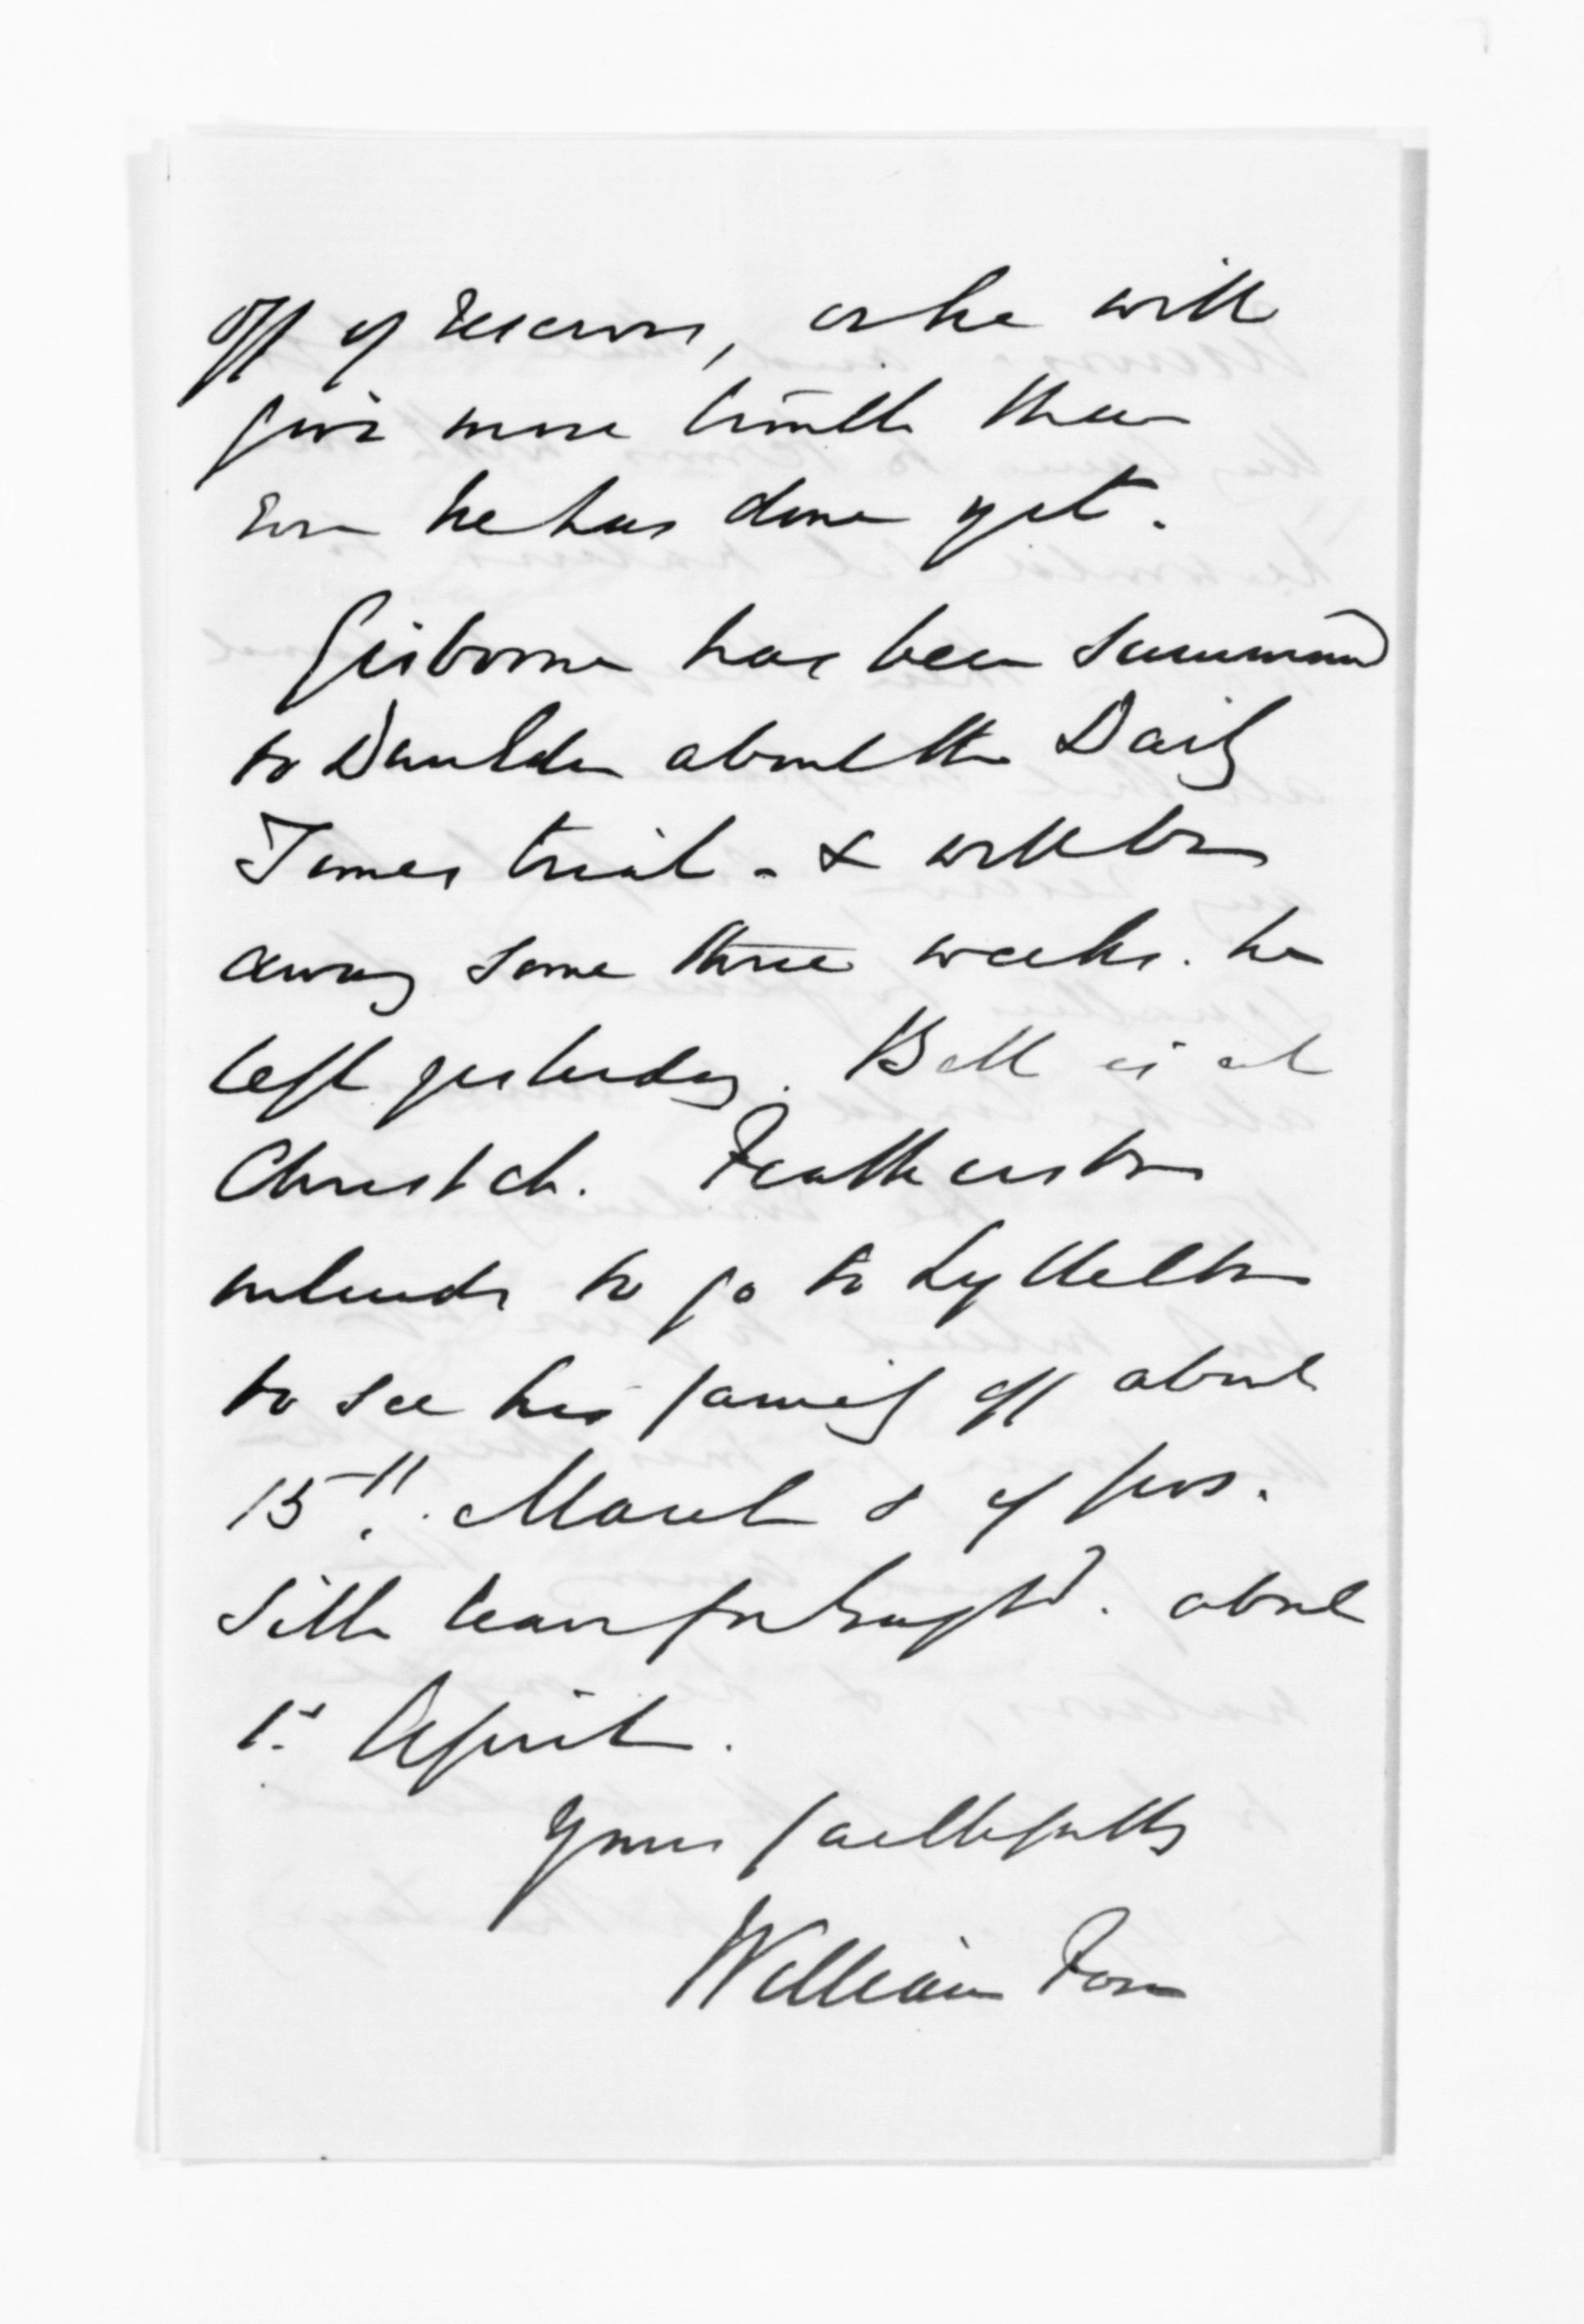 off of Uncoura, or he will
give more trouble than
ever he has done yet.
Gisborne has been summon'd
to Dunedin about the Daily
Times trial - & will be
away some three weeks. he
left yesterday. Bell is at
Christch. Featherston
intends to go to Lyttelton
to see his family off about
15th. March & if poss.
will leave for Engld. about
1st April.
Yours faithfully
William Fox